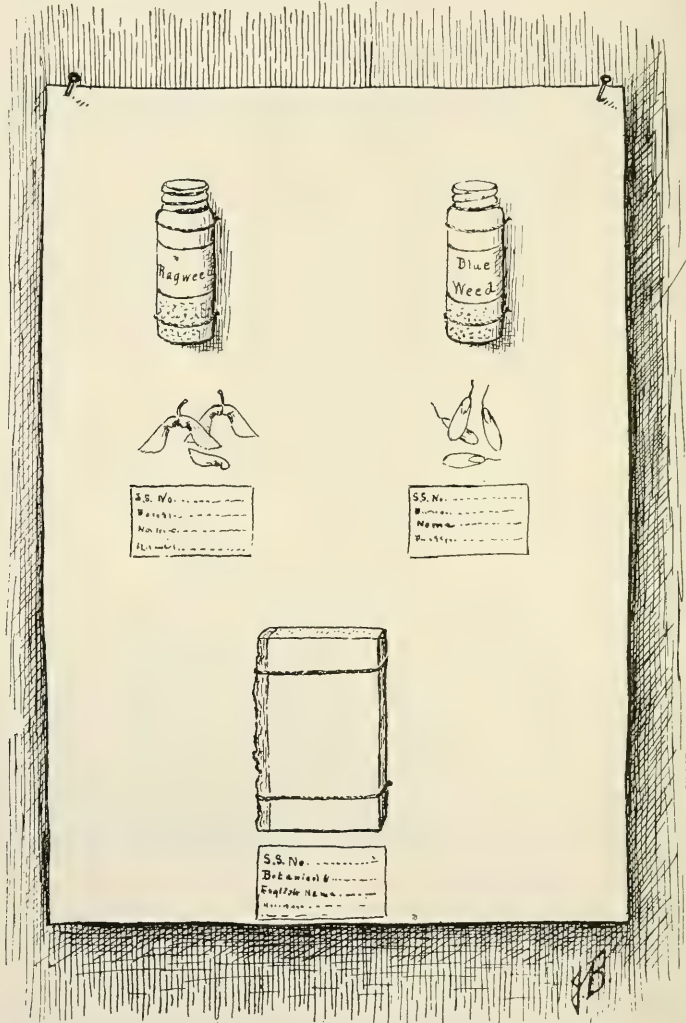 Ragweed
Blue
Weed
S.S. No.
S.S. No.
Name
S.S. No.
Botanical N
English Name
JB